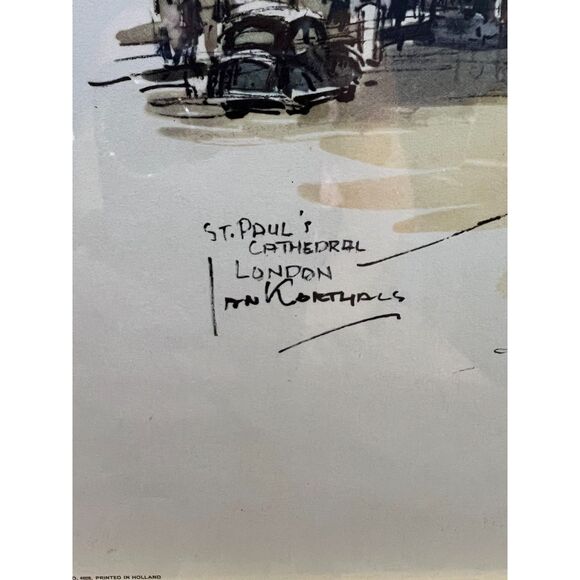 ST. PAUL'S
CATHEDRAL
LONDON
JAN KORTHALS
PRINTED IN HOLLAND